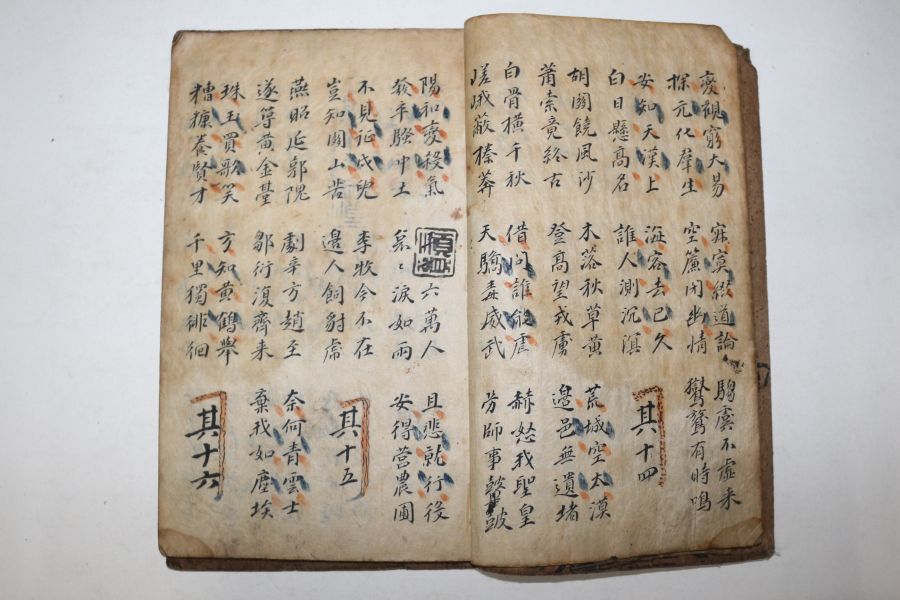 變觀窮大易
探元化羣生
寂寞綴道論
空簾閉幽情
騶虞不虛來
鸑鷟有時鳴
安知天漢上
白日懸高名
海客去已久
誰人測沉溟
其十四
胡關饒風沙
蕭索竟終古
木落秋草黃
登高望戎虜
荒城空太漠
邊邑無遺堵
白骨橫千秋
嵯峨蔽榛莽
借問誰凌虐
天驕毒威武
赫怒我聖皇
勞師事鼙皷
陽和變殺氣
發卒騷中土
六萬人
哀〻淚如雨
且悲就行役
安得营農圃
不見征戍兒
豈知関山苦
李牧今不在
邊人飼豺虎
其十五
燕昭延郭隗
遂築黃金臺
劇辛方趙至
鄒衍復齊来
奈何青雲士
棄我如塵埃
珠玉買歌笑
糟糠養賢才
方知黃鶴舉
千里獨徘徊
其十六